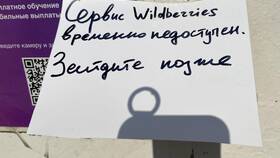 платное обучение
бильные выплаты
ведите камеру и за
Сервис Wildberries
временно недоступен.
Зайдите позже